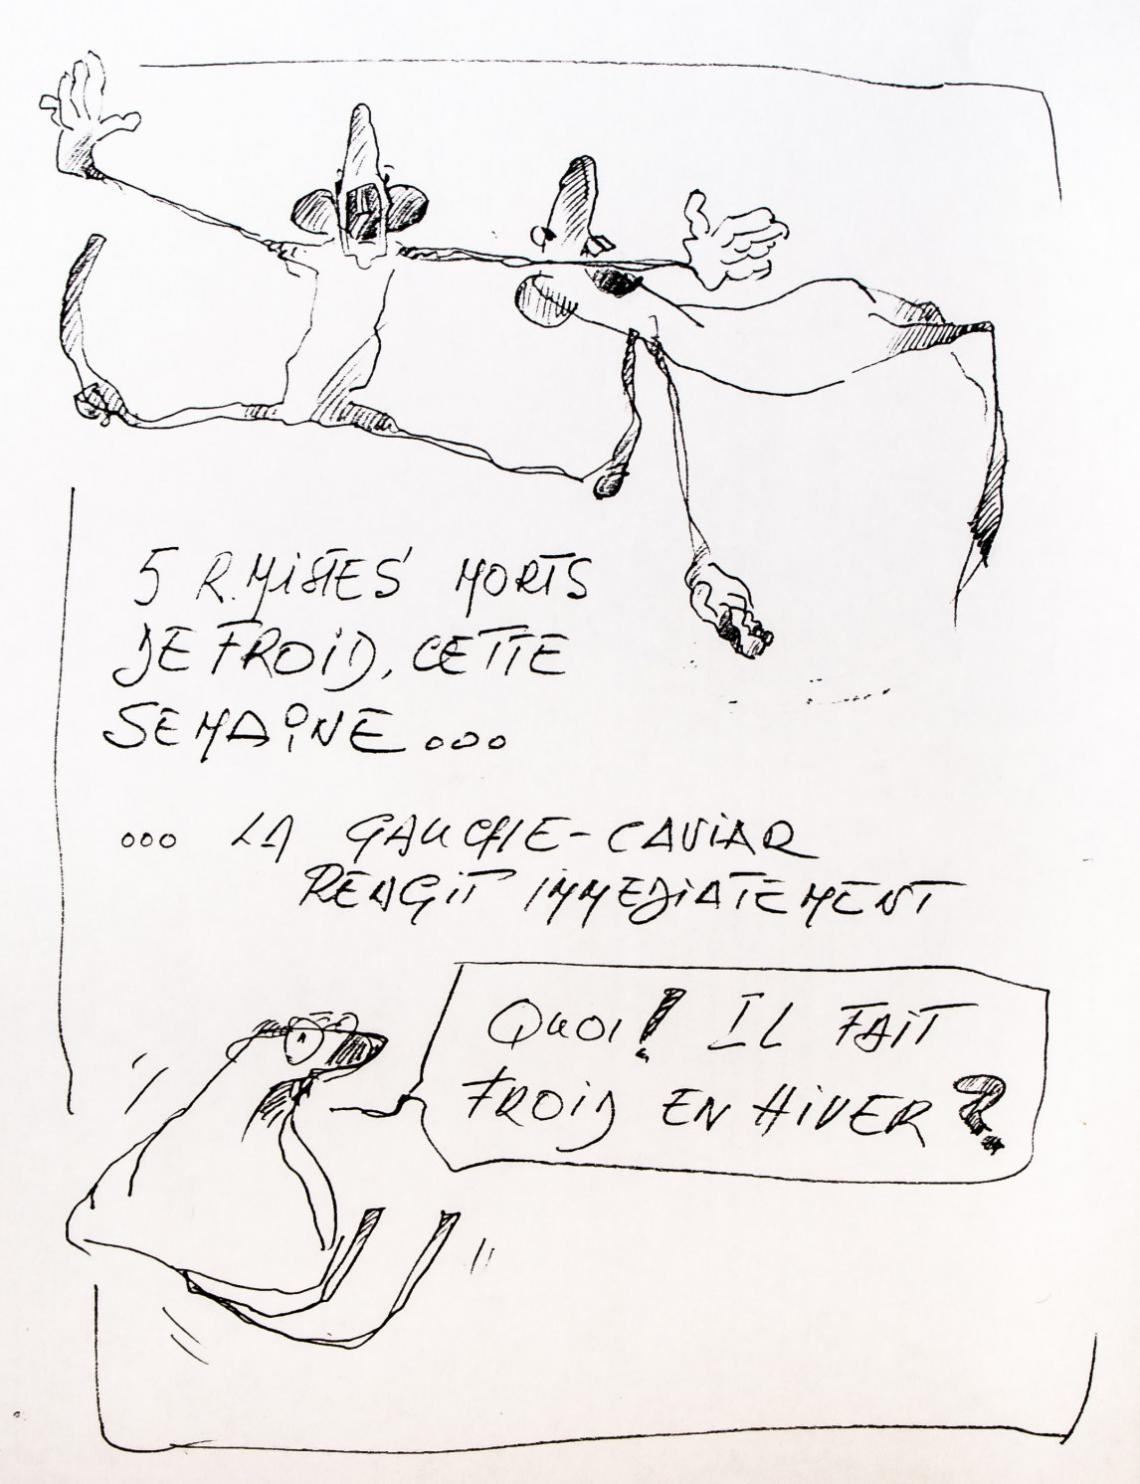 5 R.MISTES MORTS
DE FROID, CETTE
SEMAINE...
... LA GAUCHE-CAVIAR
REAGIT IMMEDIATEMENT
QUOI! IL FAIT
FROID EN HIVER?